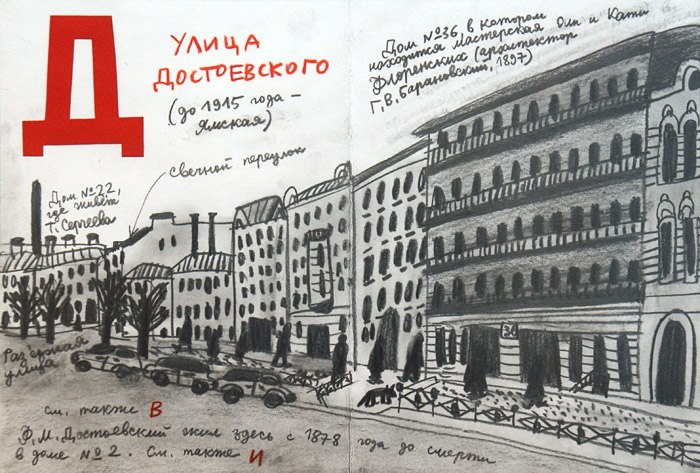 Д
УЛИЦА
ДОСТОЕВСКОГО
(до 1915 года –
Ямская)
Дом №36, в котором
находится мастерская Оли и Кати
Флоренских (архитектор
Г.В. Барановский, 1897)
свечной переулок
Дом №22,
где живёт
Т. Сергеева
36
Разъезжая
улица
см. также В
Ф.М. Достоевский жил здесь с 1878 года до смерти
в доме №2. См. также И